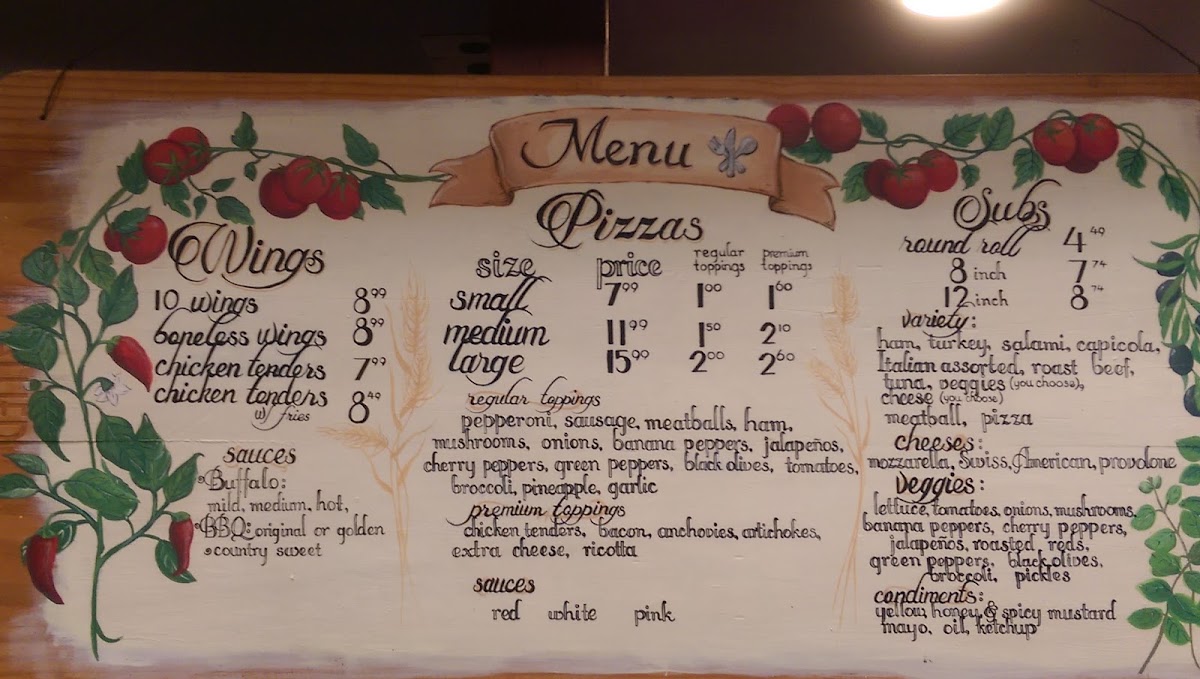 Menu
Wings
10 wings 8.99
boneless wings 8.99
chicken tenders 7.99
chicken tenders 8.49
w/ fries
sauces
Buffalo:
mild, medium, hot,
BBQ: original or golden
country sweet
Pizzas
size price regular toppings premium toppings
small 7.99 1.00 1.60
medium 11.99 1.50 2.10
large 15.99 2.00 2.60
regular toppings
pepperoni, sausage, meatballs, ham,
mushrooms, onions, banana peppers, jalapeños,
cherry peppers, green peppers, black olives, tomatoes,
broccoli, pineapple, garlic
premium toppings
chicken tenders, bacon, anchovies, artichokes,
extra cheese, ricotta
sauces
red white pink
Subs
round roll 4.49
8 inch 7.74
12 inch 8.74
variety:
ham, turkey, salami, capicola,
Italian assorted, roast beef,
tuna, veggies (you choose),
cheese (you choose)
meatball, pizza
cheeses:
mozzarella, Swiss, American, provolone
veggies:
lettuce, tomatoes, onions, mushrooms,
banana peppers, cherry peppers,
jalapeños, roasted reds,
green peppers, black olives,
broccoli, pickles
condiments:
yellow, honey, & spicy mustard
mayo, oil, ketchup